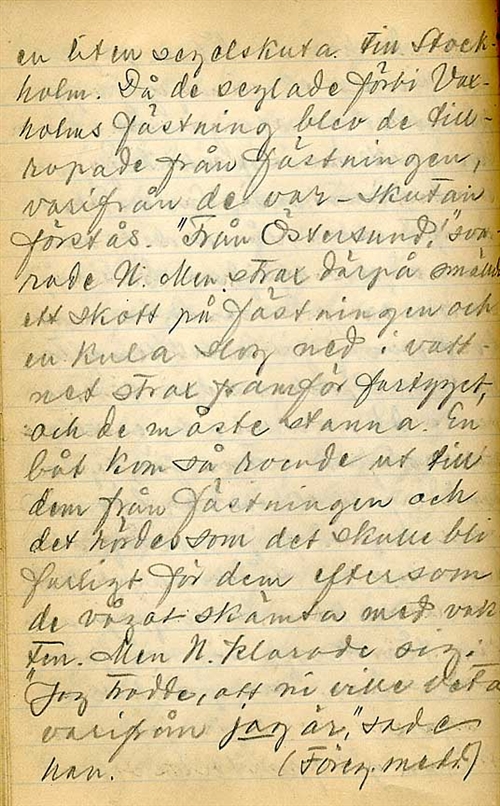 en liten segelskuta till Stock-
holm. Då de seglade förbi Vax-
holms fästning blev de till-
ropade från fästningen,
varifrån de var - skutan
förstås. "Från Östersund!" sva-
rade N. Men strax därpå small
ett skott på fästningen och
en kula slog ned i vatt-
net strax framför fartyget,
och de måste stanna. En
båt kom så roende ut till
dem från fästningen och
det hördes som det skulle bli
farligt för dem eftersom
de vågat skämta med vak
ten. Men N. klarade sig.
"Jag trodde, att ni ville veta
varifrån jag är," sade
han. (Föreg. medd.)